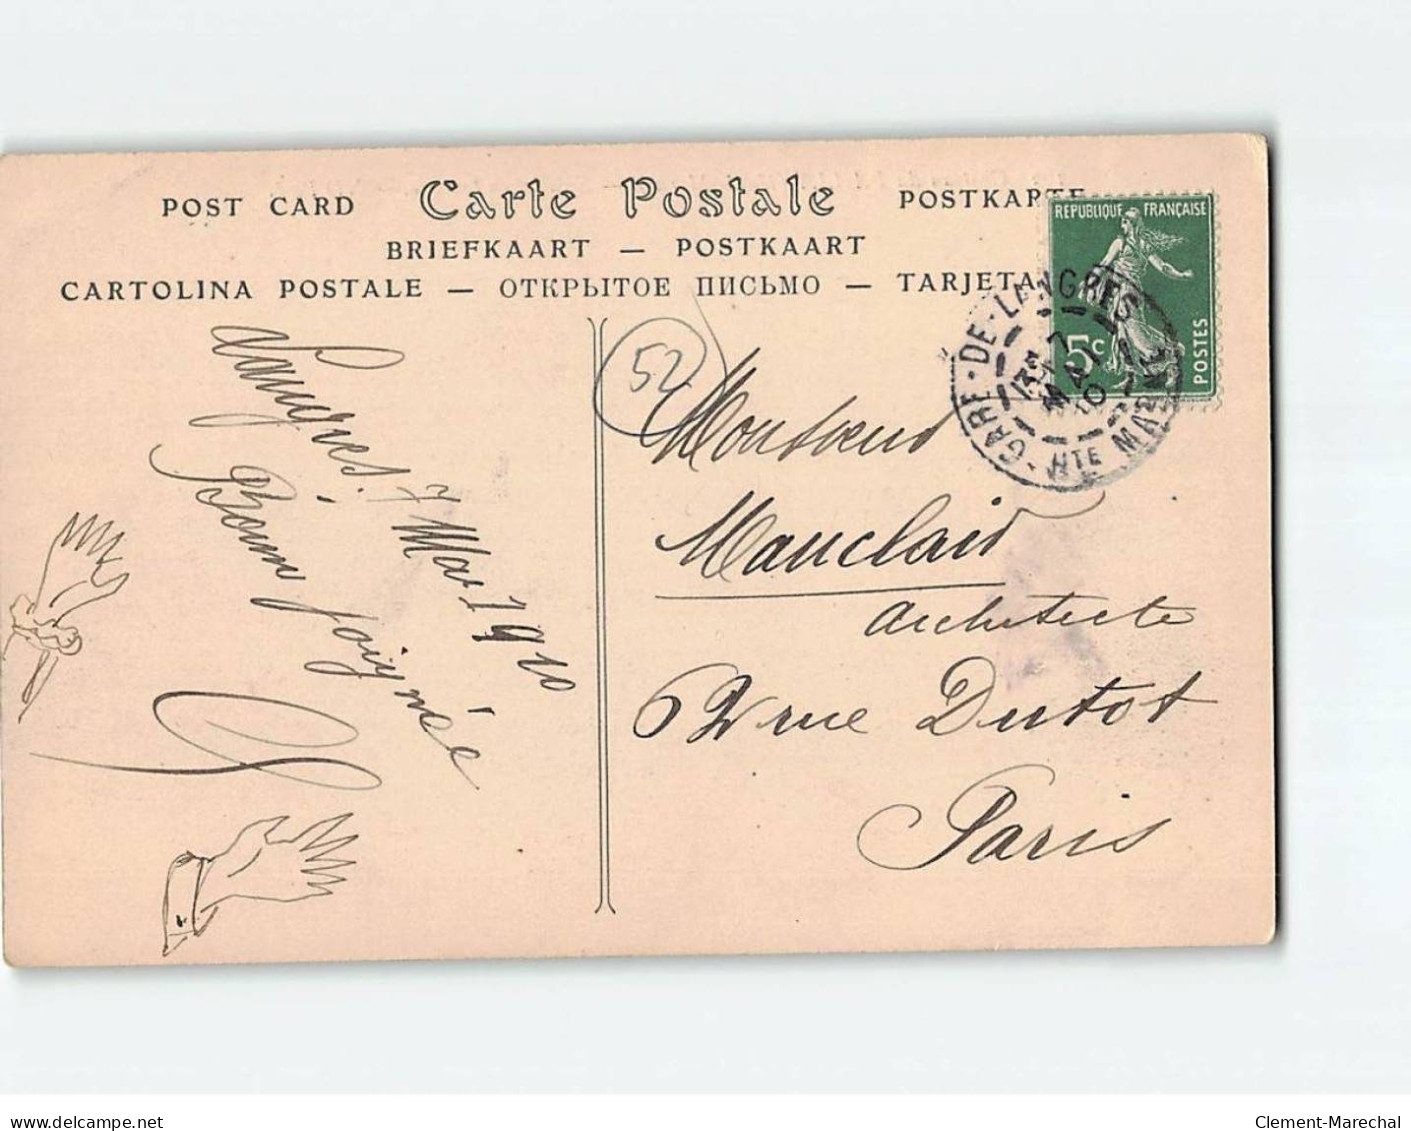 POST CARD Carte Postale POSTKARTE
BRIEFKAART — POSTKAART
CARTOLINA POSTALE — ОТКРЫТОЕ ПИСЬМО — TARJETA
REPUBLIQUE FRANÇAISE
5c
POSTES
GARE-DE-LANGRES
13
7
MAI
10
HTE MARNE
52
Langres. 7 Mai 1910
Bonne journée
Monsieur
Mauclair
Architecte
62 rue Dutot
Paris
delcampe.net
Clement-Marechal